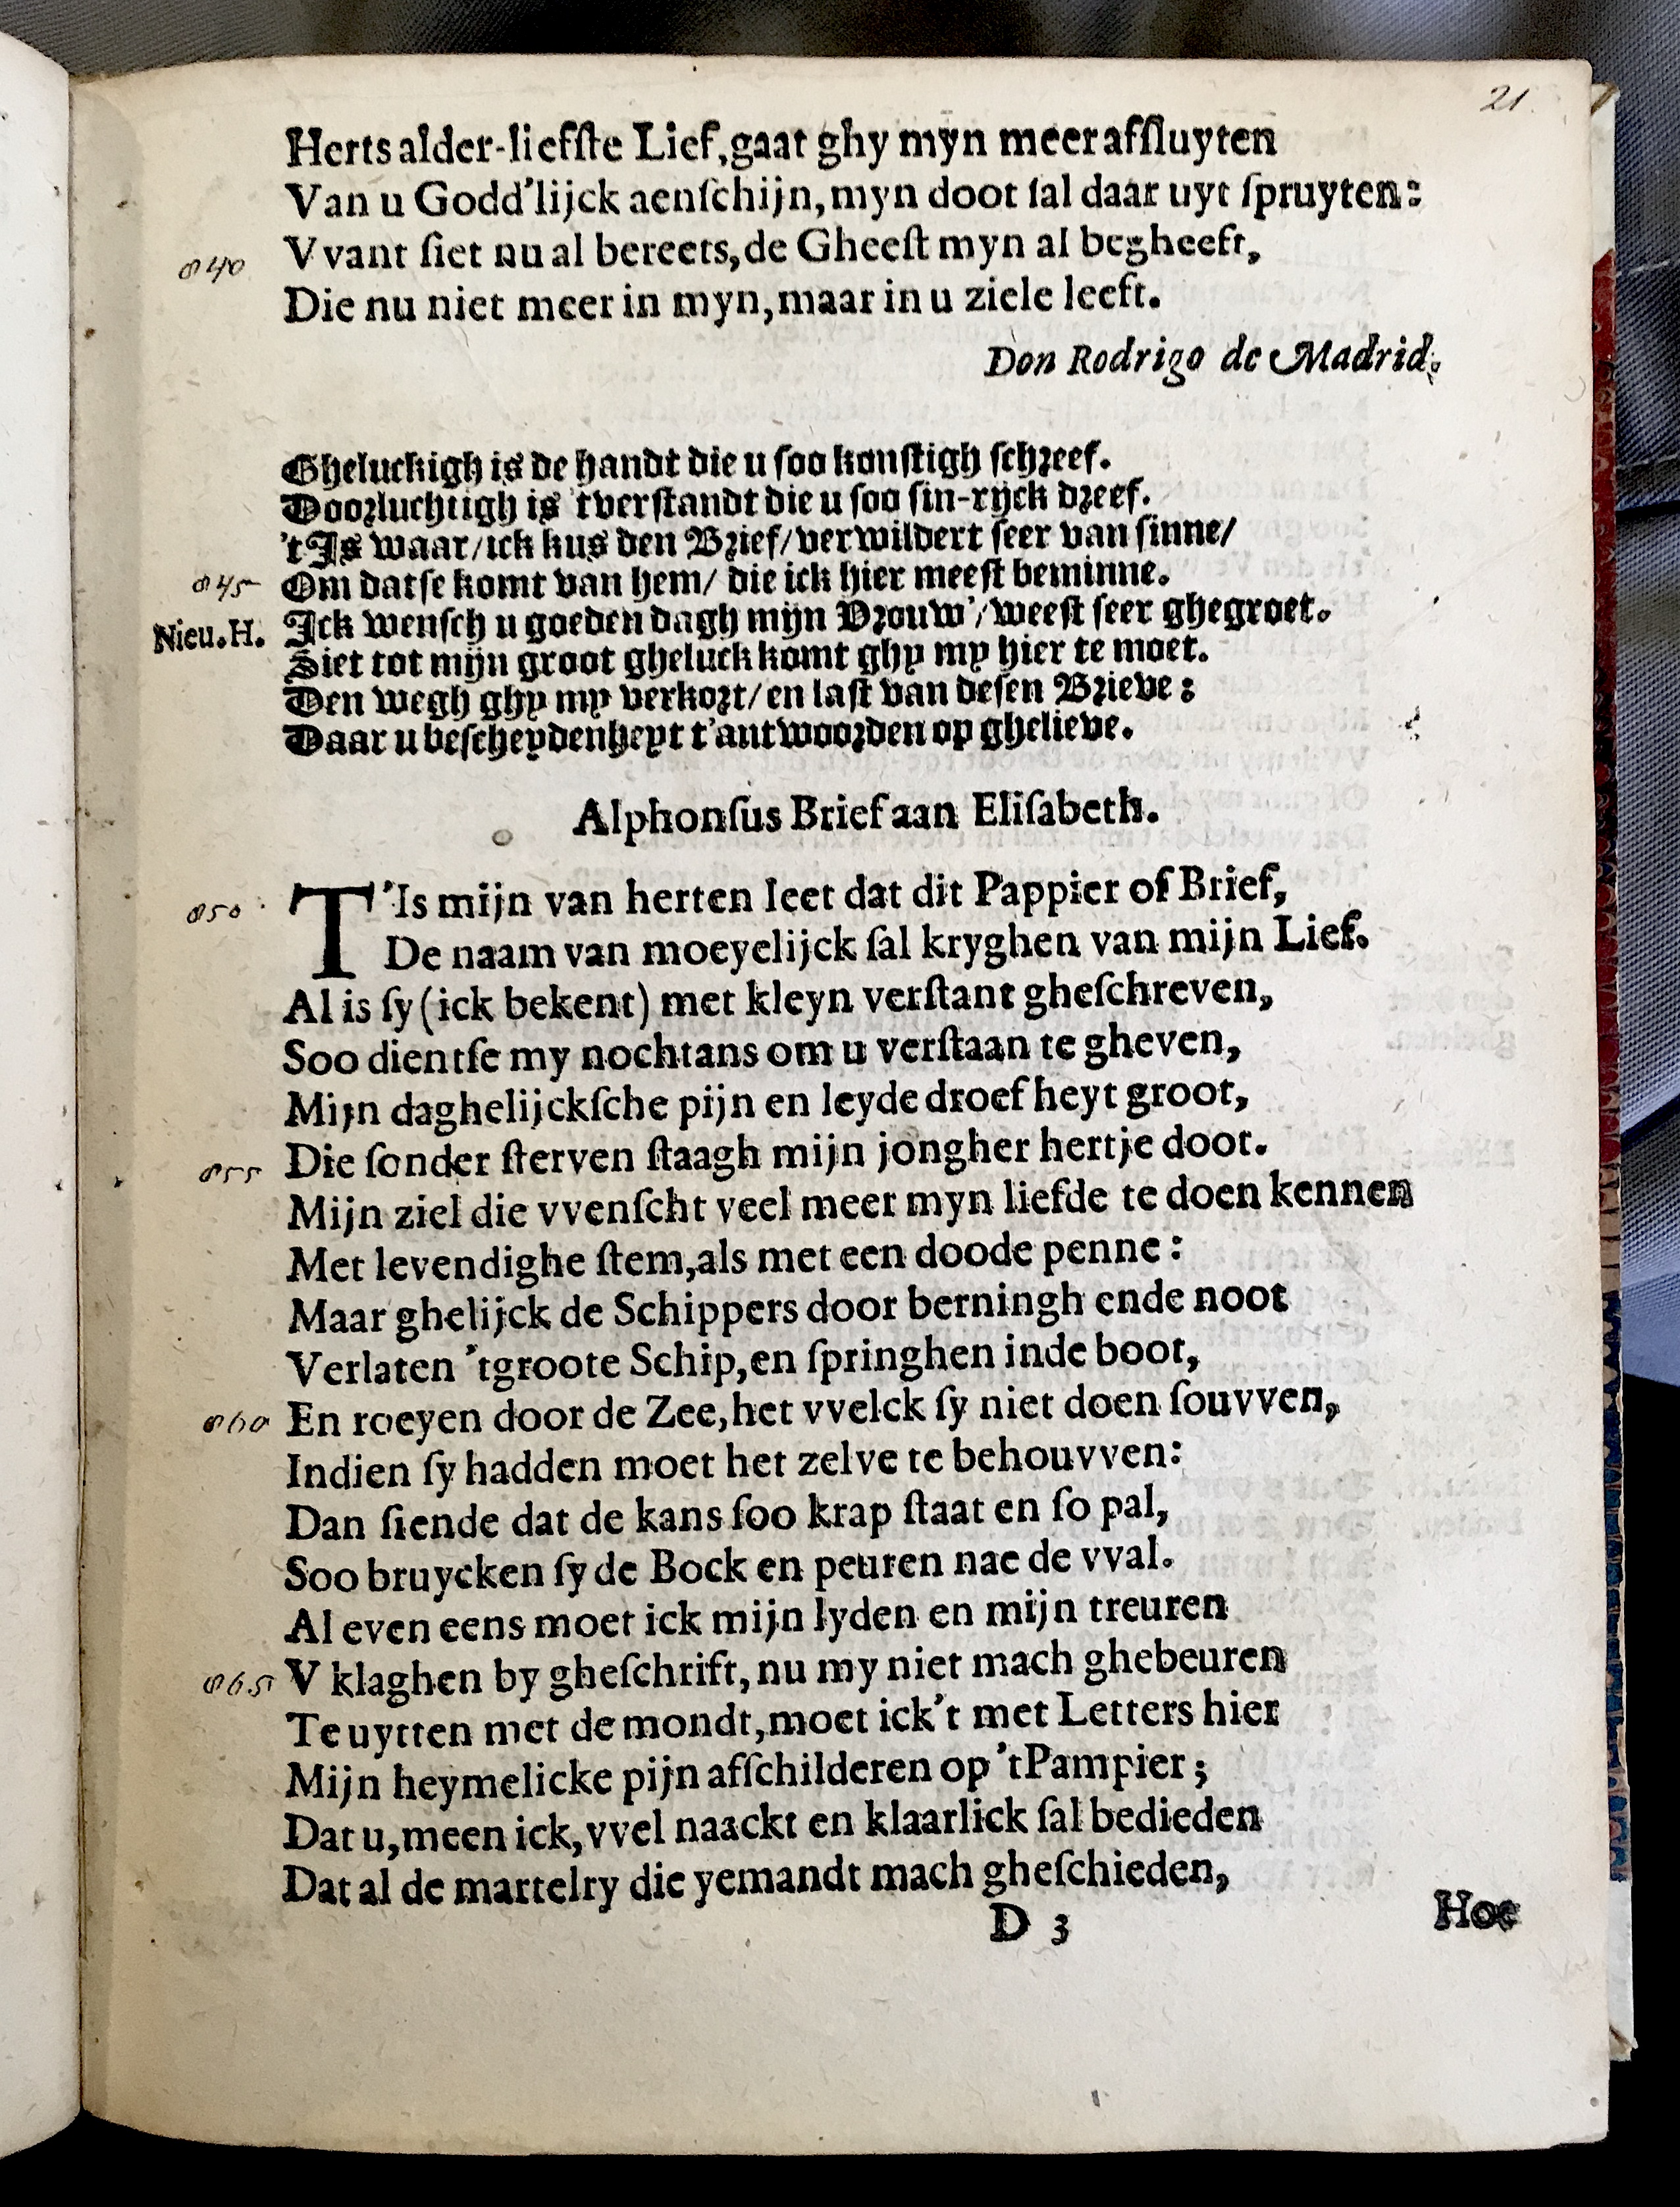 21.
Herts alder-liefſte Lief, gaat ghy myn meer afſluyten
Van u Godd'lijck aenſchijn, myn doot ſal daar uyt ſpruyten:
840 Vvant ſiet nu al bereets, de Gheeſt myn al begheeft,
Die nu niet meer in myn, maar in u ziele leeft.
Don Rodrigo de Madrid.
Gheluckigh is de handt die u ſoo konſtigh ſchreef.
Doorluchtigh is 't verſtandt die u ſoo ſin-rijck dreef.
't Is waar/ ick kus den Brief/ verwildert ſeer van ſinne/
845 Om datſe komt van hem/ die ick hier meeſt beminne.
Nieu. H. Ick wenſch u goeden dagh mijn Vrouw'/ weeſt ſeer ghegroet.
Siet tot mijn groot gheluck komt ghy my hier te moet.
Den wegh ghy my verkort/ en laſt van deſen Brieve:
Daar u beſcheydenheyt t'antwoorden op ghelieve.
Alphonſus Brief aan Eliſabeth.
850 T'Is mijn van herten leet dat dit Pappier of Brief,
De naam van moeyelijck ſal kryghen van mijn Lief.
Al is ſy (ick bekent) met kleyn verſtant gheſchreven,
Soo dientſe my nochtans om u verſtaan te gheven,
Mijn daghelijckſche pijn en leyde droefheyt groot,
855 Die ſonder ſterven ſtaagh mijn jongher hertje doot.
Mijn ziel die vvenſcht veel meer myn liefde te doen kennen
Met levendighe ſtem, als met een doode penne:
Maar ghelijck de Schippers door berningh ende noot
Verlaten 'tgroote Schip, en ſpringhen inde boot,
860 En roeyen door de Zee, het vvelck ſy niet doen ſouvven,
Indien ſy hadden moet het zelve te behouvven:
Dan ſiende dat de kans ſoo krap ſtaat en ſo pal,
Soo bruycken ſy de Bock en peuren nae de vval.
Al even eens moet ick mijn lyden en mijn treuren
865 V klaghen by gheſchrift, nu my niet mach ghebeuren
Te uytten met de mondt, moet ick't met Letters hier
Mijn heymelicke pijn afſchilderen op 't Pampier;
Dat u, meen ick, vvel naackt en klaarlick ſal bedieden
Dat al de martelry die yemandt mach gheſchieden,
D 3
Hoe